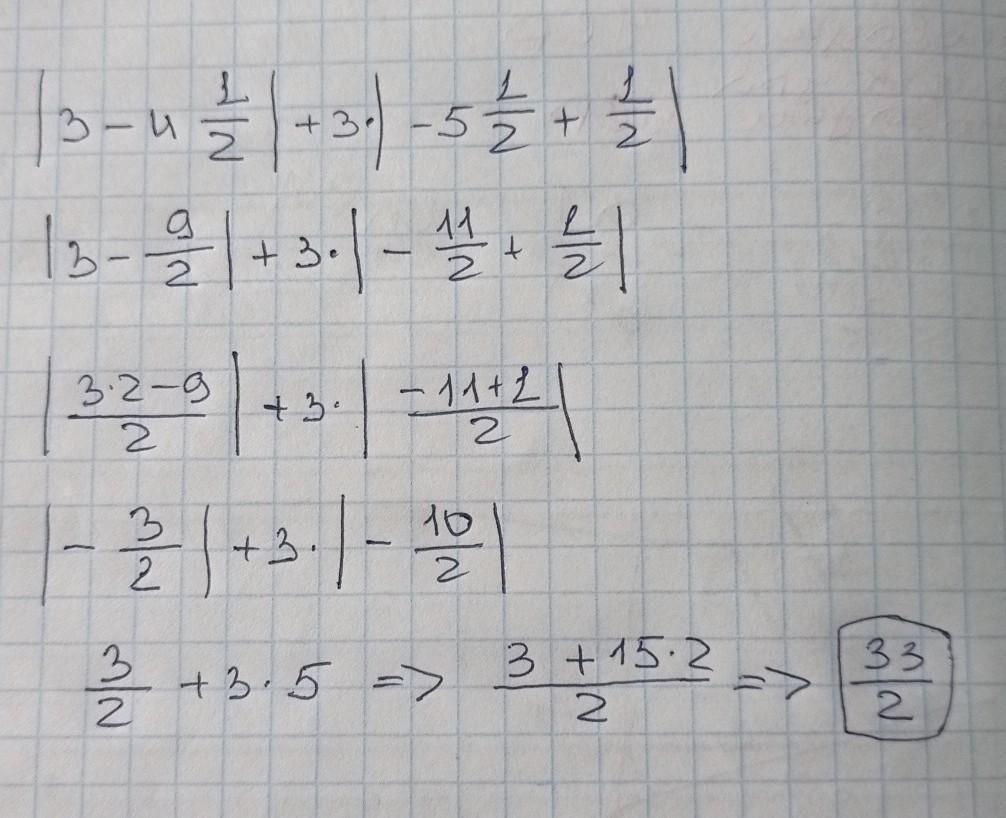 |3 - 4 1/2| + 3 · |-5 1/2 + 1/2|
|3 - 9/2| + 3 · |- 11/2 + 1/2|
|(3·2-9)/2| + 3 · |(-11+1)/2|
|- 3/2| + 3 · |- 10/2|
3/2 + 3 · 5 => (3 + 15·2)/2 => 33/2